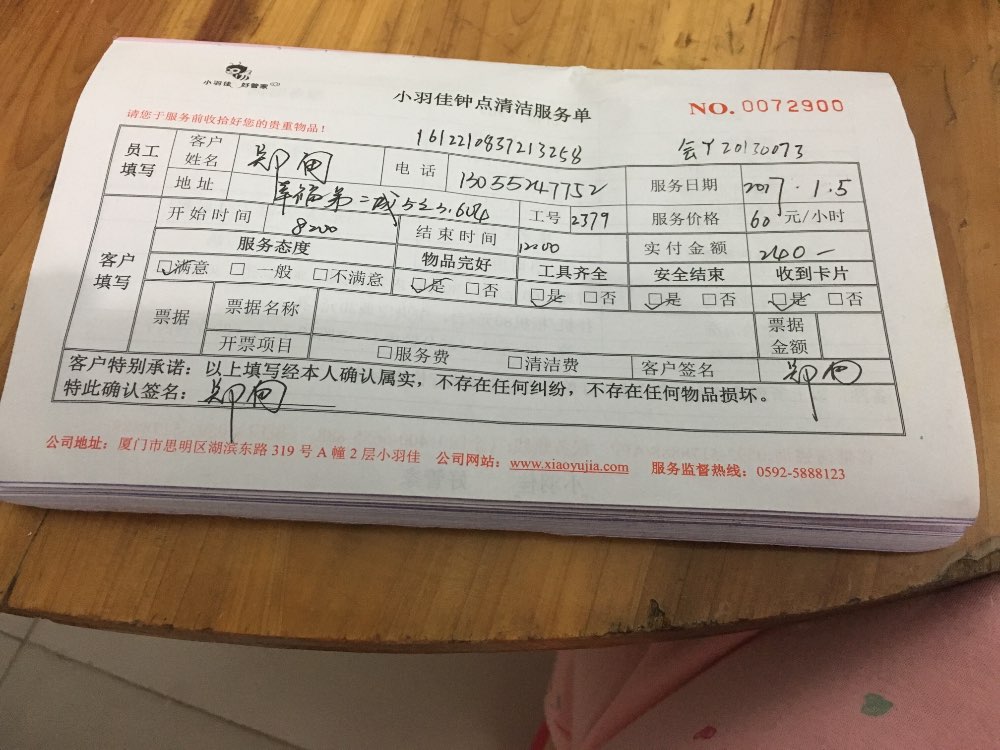 小羽佳 好管家
小羽佳钟点清洁服务单
NO. 0072900
请您于服务前收拾好您的贵重物品！
1612210837213258
会员20130073
员工填写 客户姓名 郑 电话 13055247752 服务日期 2017.1.5
地址 幸福第二城 604 工号 2379 服务价格 60 元/小时
客户填写 开始时间 8:00 结束时间 12:00 实付金额 240—
服务态度 物品完好 工具齐全 安全结束 收到卡片
☑满意 □一般 □不满意 ☑是 □否 ☑是 □否 ☑是 □否 ☑是 □否
票据 票据名称 票据金额
开票项目 □服务费 □清洁费 客户签名 郑
客户特别承诺：以上填写经本人确认属实，不存在任何纠纷，不存在任何物品损坏。
特此确认签名：郑
公司地址：厦门市思明区湖滨东路 319 号 A 幢 2 层小羽佳 公司网站：www.xiaoyujia.com 服务监督热线：0592-5888123